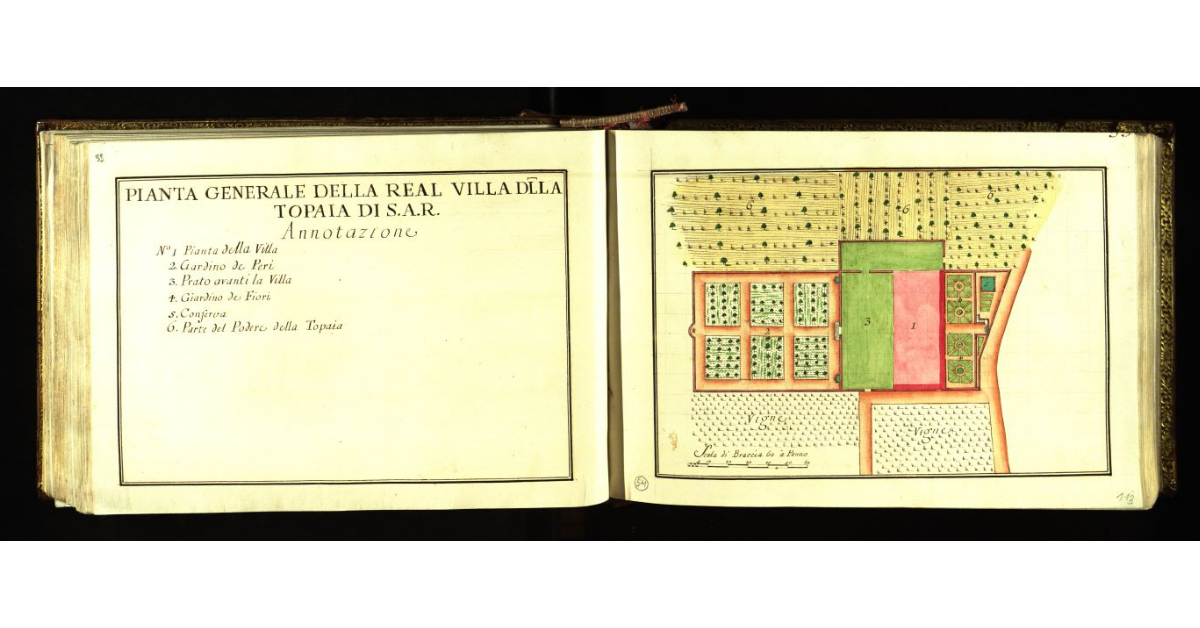 38
PIANTA GENERALE DELLA REAL VILLA DLLA
TOPAIA DI S.A.R.
Annotazione
No 1 Pianta della Villa
2. Giardino de Peri
3. Prato avanti la Villa
4. Giardino de Fiori
5. Conserva
6. Parte del Podere della Topaia
6
6
6
2
3
1
Vigne
Vigne
Scala di Braccia 60 a Panno
54
113